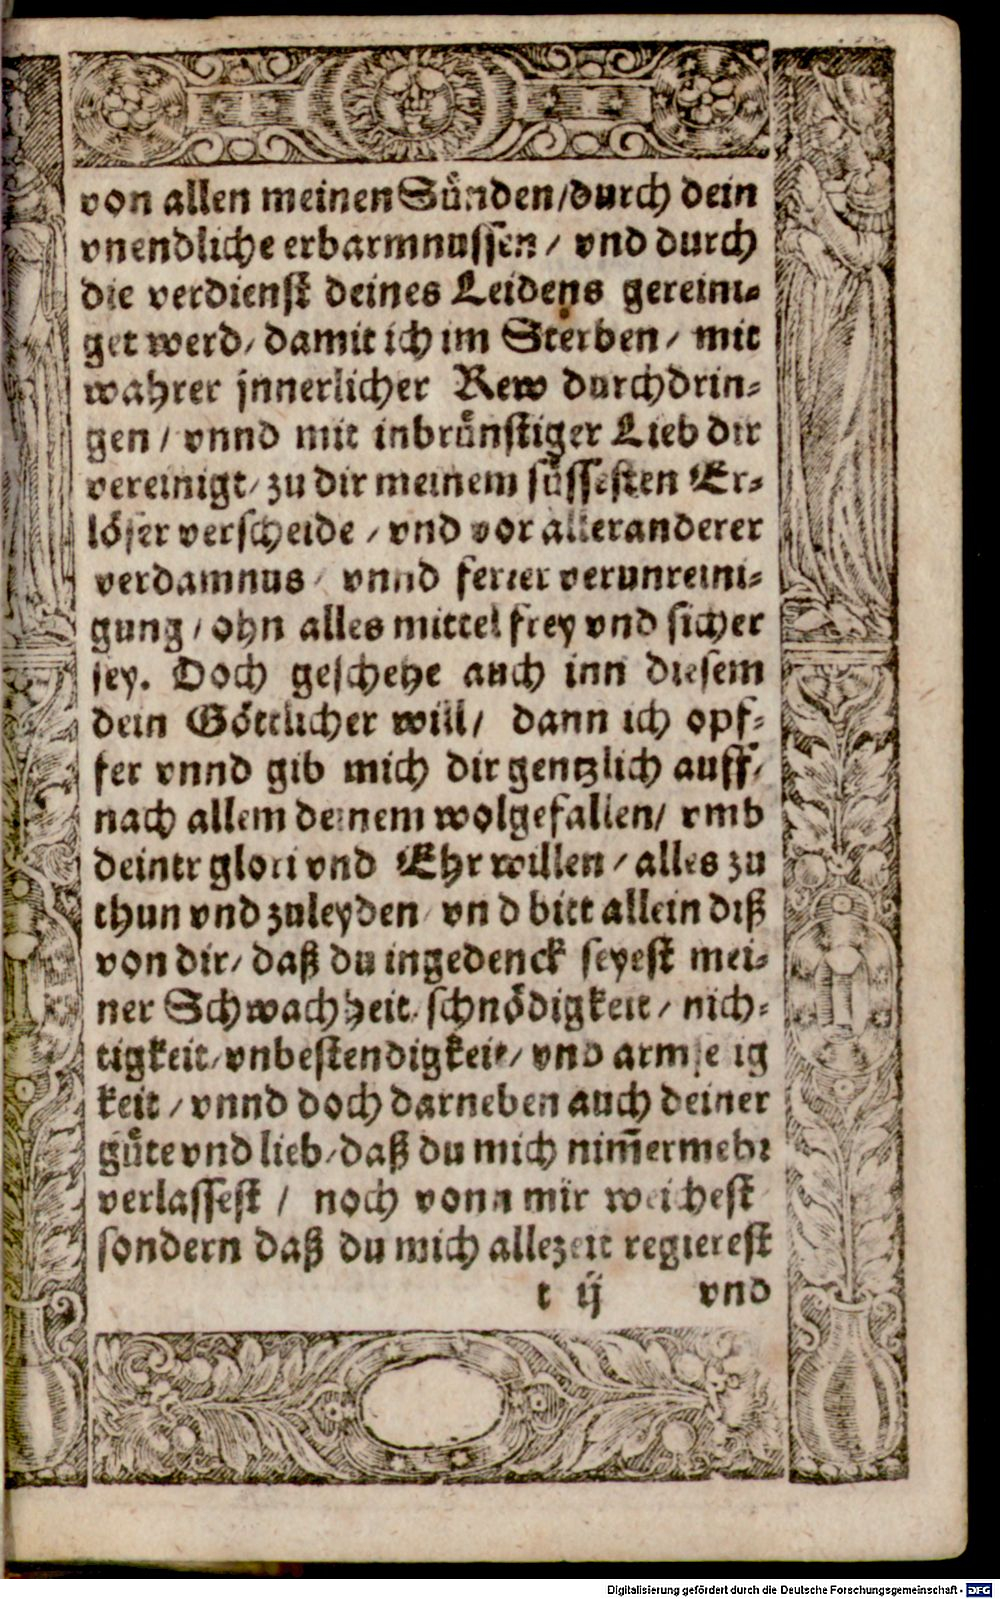 von allen meinen Sünden/durch dein
vnendliche erbarmnussen/ vnd durch
die verdienst deines Leidens gereini-
get werd/ damit ich im Sterben/ mit
wahrer jnnerlicher Rew durchdrin-
gen/ vnnd mit inbrünstiger Lieb dir
vereinigt/ zu dir meinem süssesten Er-
löser verscheide/ vnd vor aller anderer
verdamnus/ vnnd ferrer verunreini-
gung/ ohn alles mittel frey vnd sicher
sey. Doch geschehe auch inn diesem
dein Göttlicher will/ dann ich opf-
fer vnnd gib mich dir gentzlich auff/
nach allem deinem wolgefallen/ vmb
deiner glori vnd Ehr willen/ alles zu
thun vnd zuleyden/ vnd bitt allein diß
von dir/ daß du ingedenck seyest mei-
ner Schwachheit/ schnödigkeit/ nich-
tigkeit/ vnbestendigkeit/ vnd armseig
keit/ vnnd doch darneben auch deiner
güte vnd lieb/ daß du mich nim̄ermehr
verlassest/ noch vonn mir weichest
sondern daß du mich allezeit regierest
t ij vnd
Digitalisierung gefördert durch die Deutsche Forschungsgemeinschaft - DFG